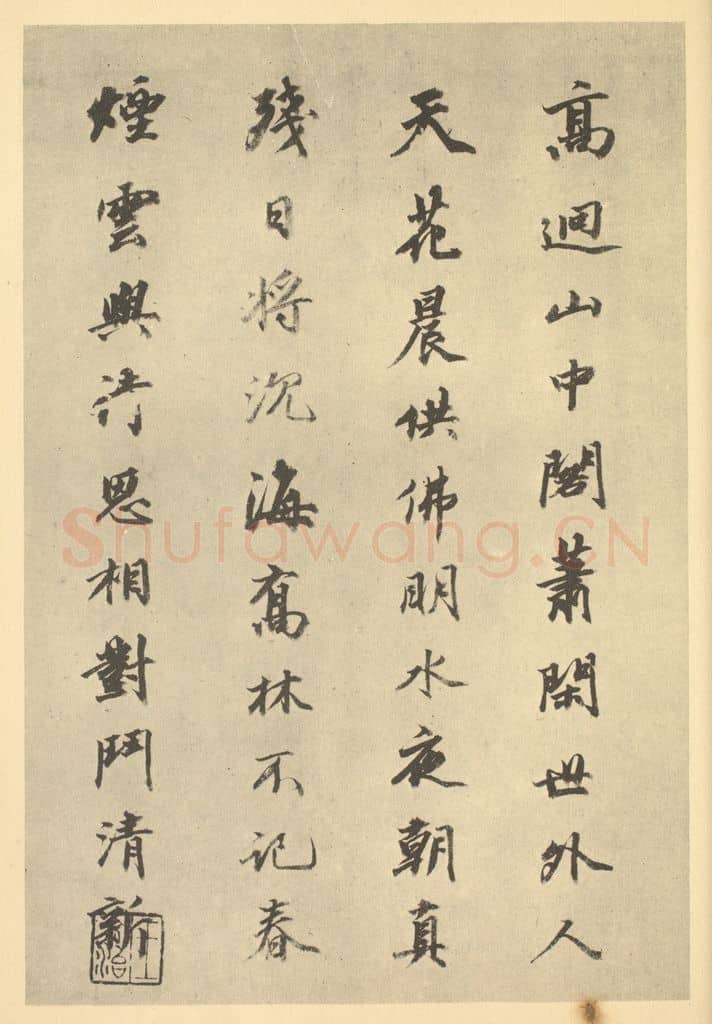 高迥山中閣蕭閑世外人
天花晨供佛明水夜朝真
殘日將沉海喬林不記春
煙雲與詩思相對鬥清新
Shufawang.CN